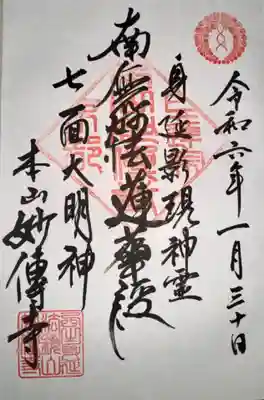 令和六年一月三十日
身延影現神霊
南無妙法蓮華経
七面大明神
本山妙傳寺